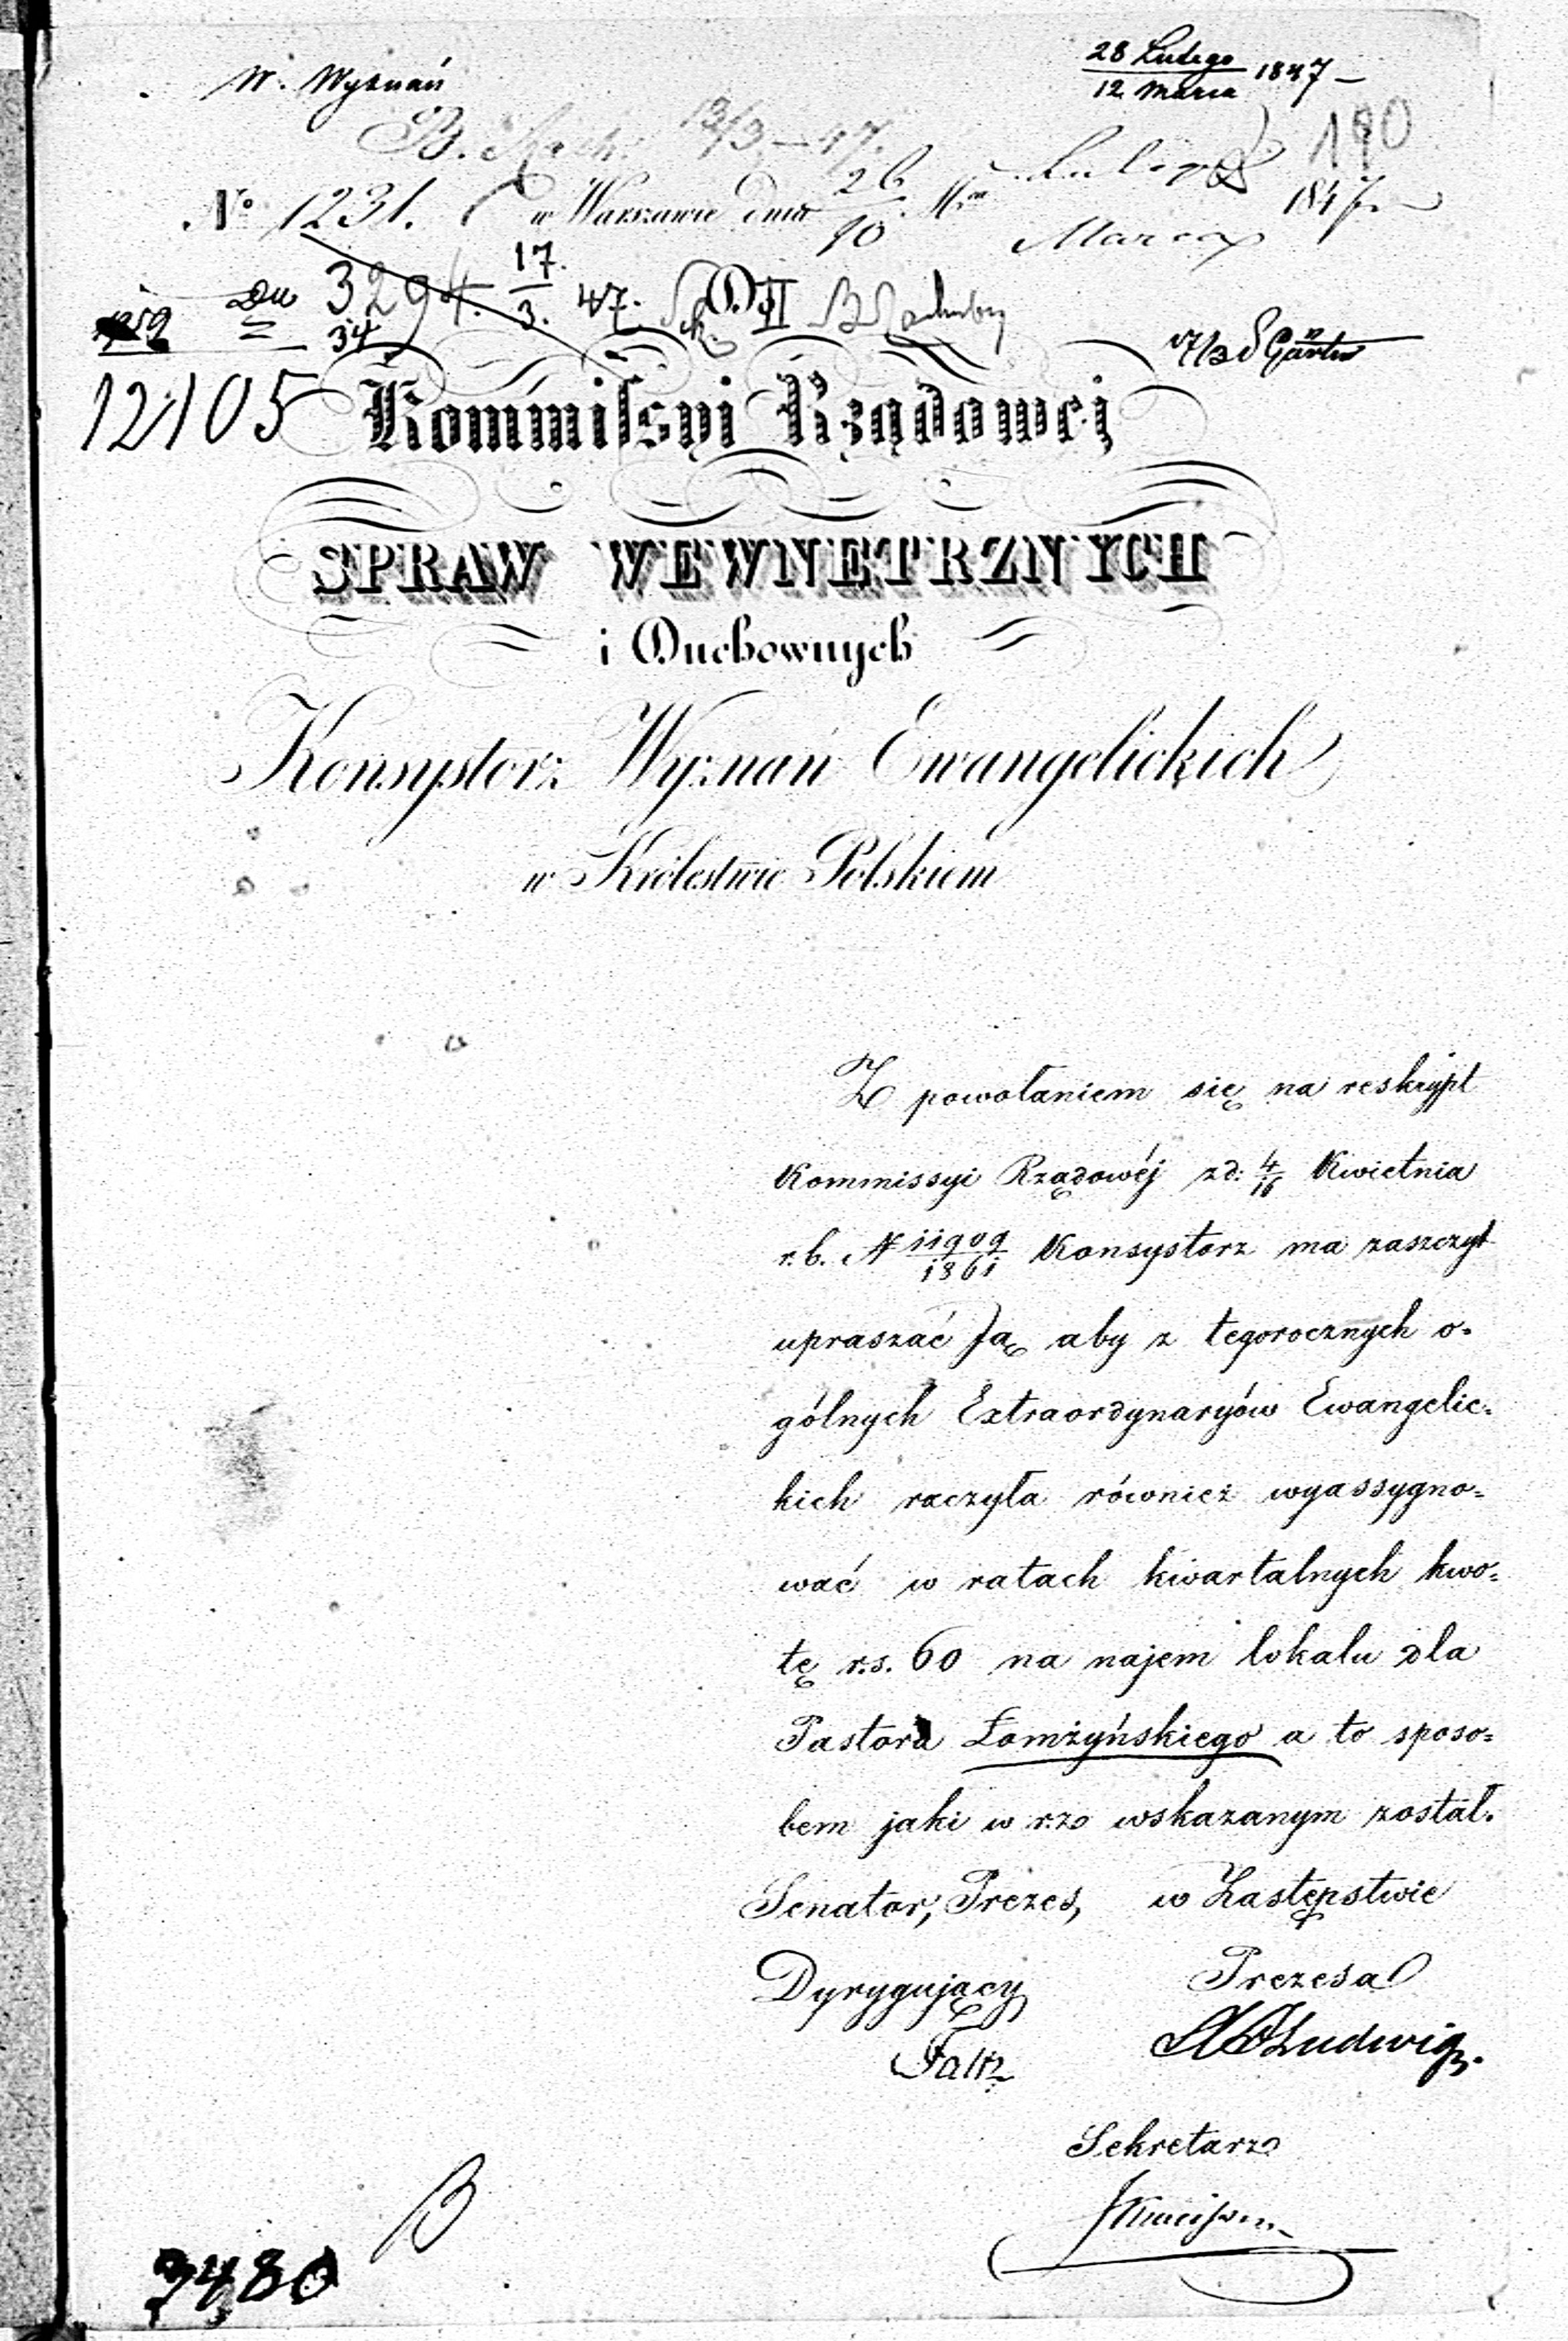 W. Wyznań
28 Lutego
12 Marca 1847 –
B. Rach. 13/3 – 47.
190
No 1231. w Warszawie dnia 26/10 M.ca Lutego/Marca 1847.
Du 3294. 17/3. 47. II
34
12105
17/3
Kommissyi Rządowej
SPRAW WEWNETRZNYCH
i Duchownych
Konsystorz Wyznań Ewangelickich
w Królestwie Polskiem
Z powołaniem się na reskrypt
Kommissyi Rządowéj zd: 4/16 Kwietnia
r. b. N 11909/1861 Konsystorz ma zaszczyt
upraszać Ją aby z tegorocznych o-
gólnych Extraordynaryów Ewangelic-
kich raczyła również wyassygno-
wać w ratach kwartalnych kwo-
tę r.s. 60 na najem lokalu dla
Pastora Łomżyńskiego a to sposo-
bem jaki w r.z. wskazanym został.
Senator, Prezes, w Zastępstwie
Dyrygujący Prezesa
Faltz Ludwig.
Sekretarz
B
3480